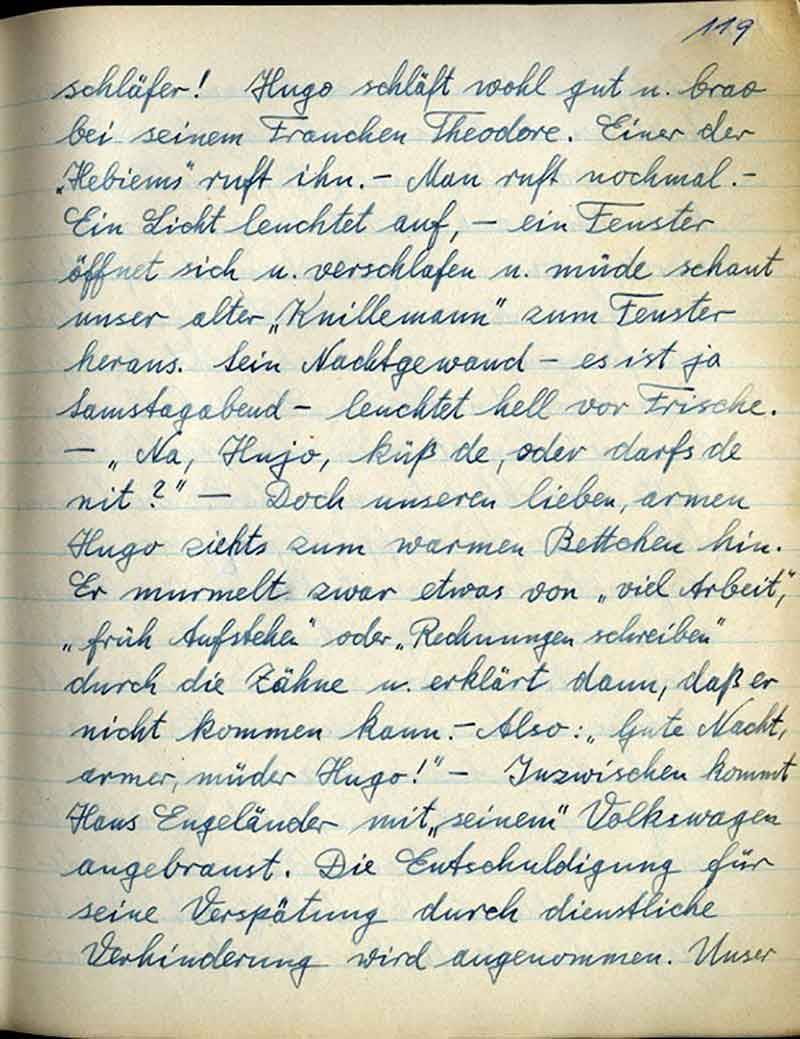 119
schläfer! Hugo schläft wohl gut u. brav
bei seinem Frauchen Theodore. Einer der
„Hebiems" ruft ihn. – Man ruft nochmal. –
Ein Licht leuchtet auf, – ein Fenster
öffnet sich u. verschlafen u. müde schaut
unser alter „Knillemann" zum Fenster
heraus. Sein Nachtgewand – es ist ja
Samstagabend – leuchtet hell vor Frische.
– „Na, Hujo, küß de, oder darfs de
nit?" – Doch unseren lieben, armen
Hugo ziehts zum warmen Bettchen hin.
Er murmelt zwar etwas von „viel Arbeit",
„früh Aufstehen" oder „Rechnungen schreiben"
durch die Zähne u. erklärt dann, daß er
nicht kommen kann. – Also: „Gute Nacht,
armer, müder Hugo!" – Inzwischen kommt
Hans Engeländer mit „seinem" Volkswagen
angebraust. Die Entschuldigung für
seine Verspätung durch dienstliche
Verhinderung wird angenommen. Unser